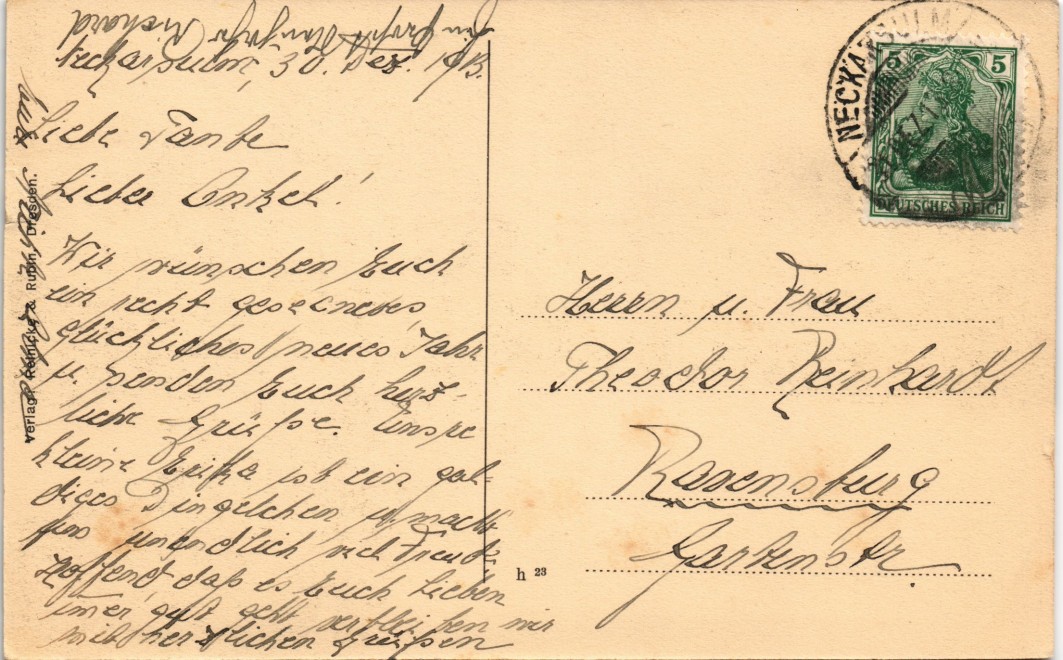 Neckarsulm, 30. Dez. 1913.
Liebe Tante
Lieber Onkel!
Wir wünschen Euch
ein recht gesegnetes,
glückliches neues Jahr
u. senden Euch herz-
liche Grüße. Unsre
kleine Erika ist ein gol-
diges Dingelchen u. macht
uns unendlich viel Freude.
Hoffend daß es Euch Lieben
immer gut geht verbleiben wir
mit herzlichen Grüßen
Richard
Verlag: Reinicke & Rubin, Dresden.
h 23
NECKARSULM
5 5
DEUTSCHES REICH
Herrn u. Frau
Theodor Reinhardt
Ravensburg
Gartenstr.